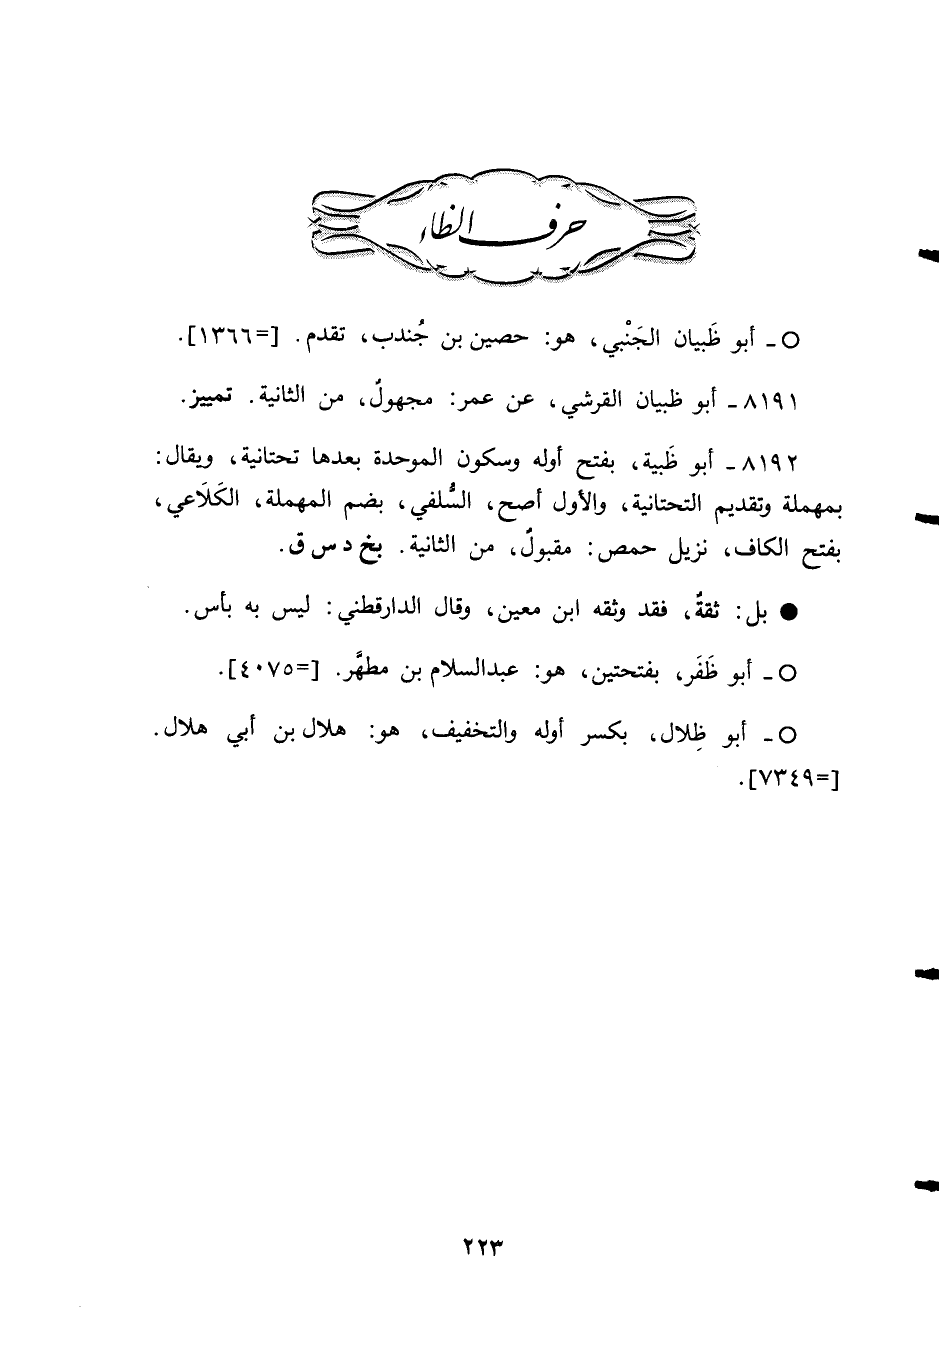 حرف الظاء
○ ـ أبو ظَبيان الجَنْبي، هو: حصين بن جُندب، تقدم. [=١٣٦٦].
٨١٩١ ـ أبو ظبيان القرشي، عن عمر: مجهولٌ، من الثانية. تمييز.
٨١٩٢ ـ أبو ظَبية، بفتح أوله وسكون الموحدة بعدها تحتانية، ويقال:
بمهملة وتقديم التحتانية، والأول أصح، السُّلفي، بضم المهملة، الكَلَاعي،
بفتح الكاف، نزيل حمص: مقبولٌ، من الثانية. بخ د س ق.
● بل: ثقةٌ، فقد وثقه ابن معين، وقال الدارقطني: ليس به بأس.
○ ـ أبو ظَفَر، بفتحتين، هو: عبدالسلام بن مطهَّر. [=٤٠٧٥].
○ ـ أبو ظِلال، بكسر أوله والتخفيف، هو: هلال بن أبي هلال.
[=٧٣٤٩].
٢٢٣